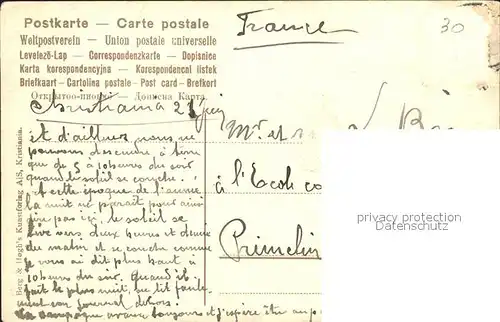 Postkarte — Carte postale
Weltpostverein — Union postale universelle
Levelező-Lap — Correspondenzkarte — Dopisnice
Karta korespondencyjna — Korespondencni listek
Briefkaart — Cartolina postale — Post card — Brefkort
Открытое письмо — Дописна Карта
France
30
Christiania 21 juin
Et d'ailleurs nous ne
pouvons descendre, à terre
que de 5 à 10 heures du soir
quand le soleil se couche.
et cette époque de l'année
la nuit ne paraît pour ainsi
dire pas ici, le soleil se
lève vers deux heures et demie
du matin et se couche comme
je vous ai dit plus haut à
10 heures du soir. Quand il
fait le plus nuit, on lit
son journal dehors.
La campagne avance toujours et j'espère être au
Mr et
à l'Ecole
Primelin
Berg & Høgh's Kunstforlag A/S, Kristiania.
privacy protection
Datenschutz